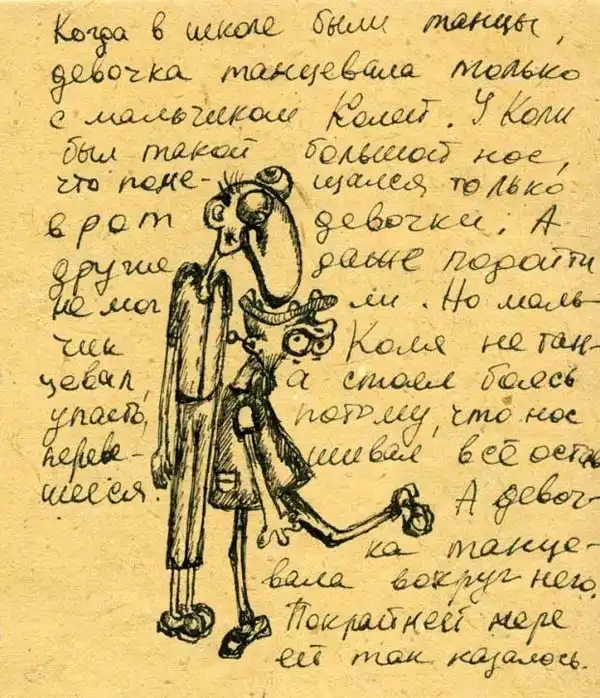 Когда в школе были танцы,
девочка танцевала только
с мальчиком Колей. У Коли
был такой большой нос,
что поме- щался только
в рот девочки. А
другие даже подойти
не мог ли. Но маль-
чик Коля не тан-
цевал, а стоял боясь
упасть, потому, что нос
переве- шивал всё остав
шееся. А девоч-
ка танце-
вала вокруг него.
Покрайней мере
ей так казалось.